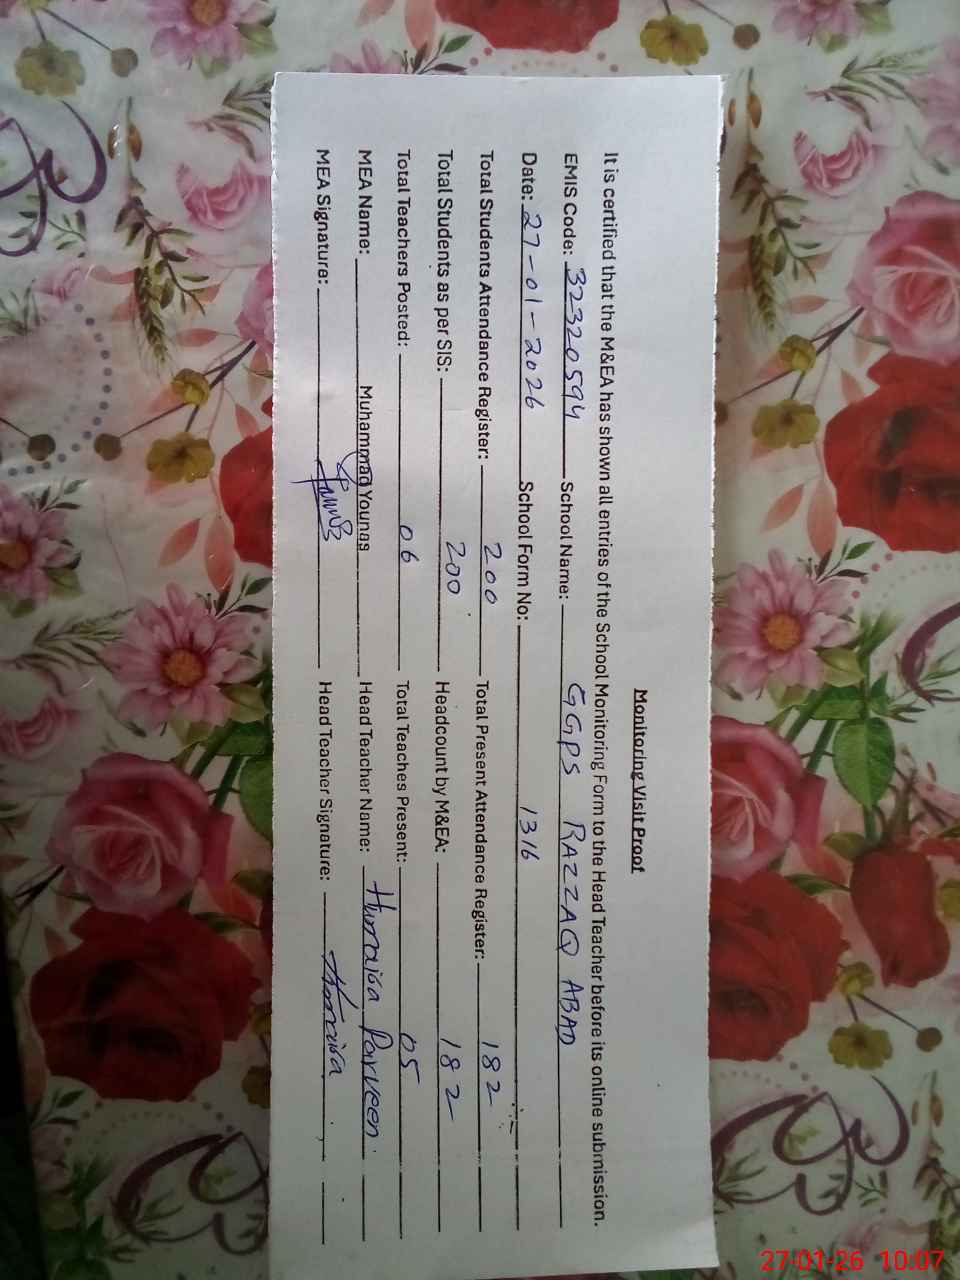 Monitoring Visit Proof
It is certified that the M&EA has shown all entries of the School Monitoring Form to the Head Teacher before its online submission.
EMIS Code: 32320594 School Name: GGPS RAZZAQ ABAD
Date: 27-01-2026 School Form No: 1316
Total Students Attendance Register: 200 Total Present Attendance Register: 182
Total Students as per SIS: 200 Headcount by M&EA: 182
Total Teachers Posted: 06 Total Teaches Present: 05
MEA Name: Muhammad Younas Head Teacher Name: Humaira Parveen
MEA Signature: Younas Head Teacher Signature: Humaira
27-01-26 10:07